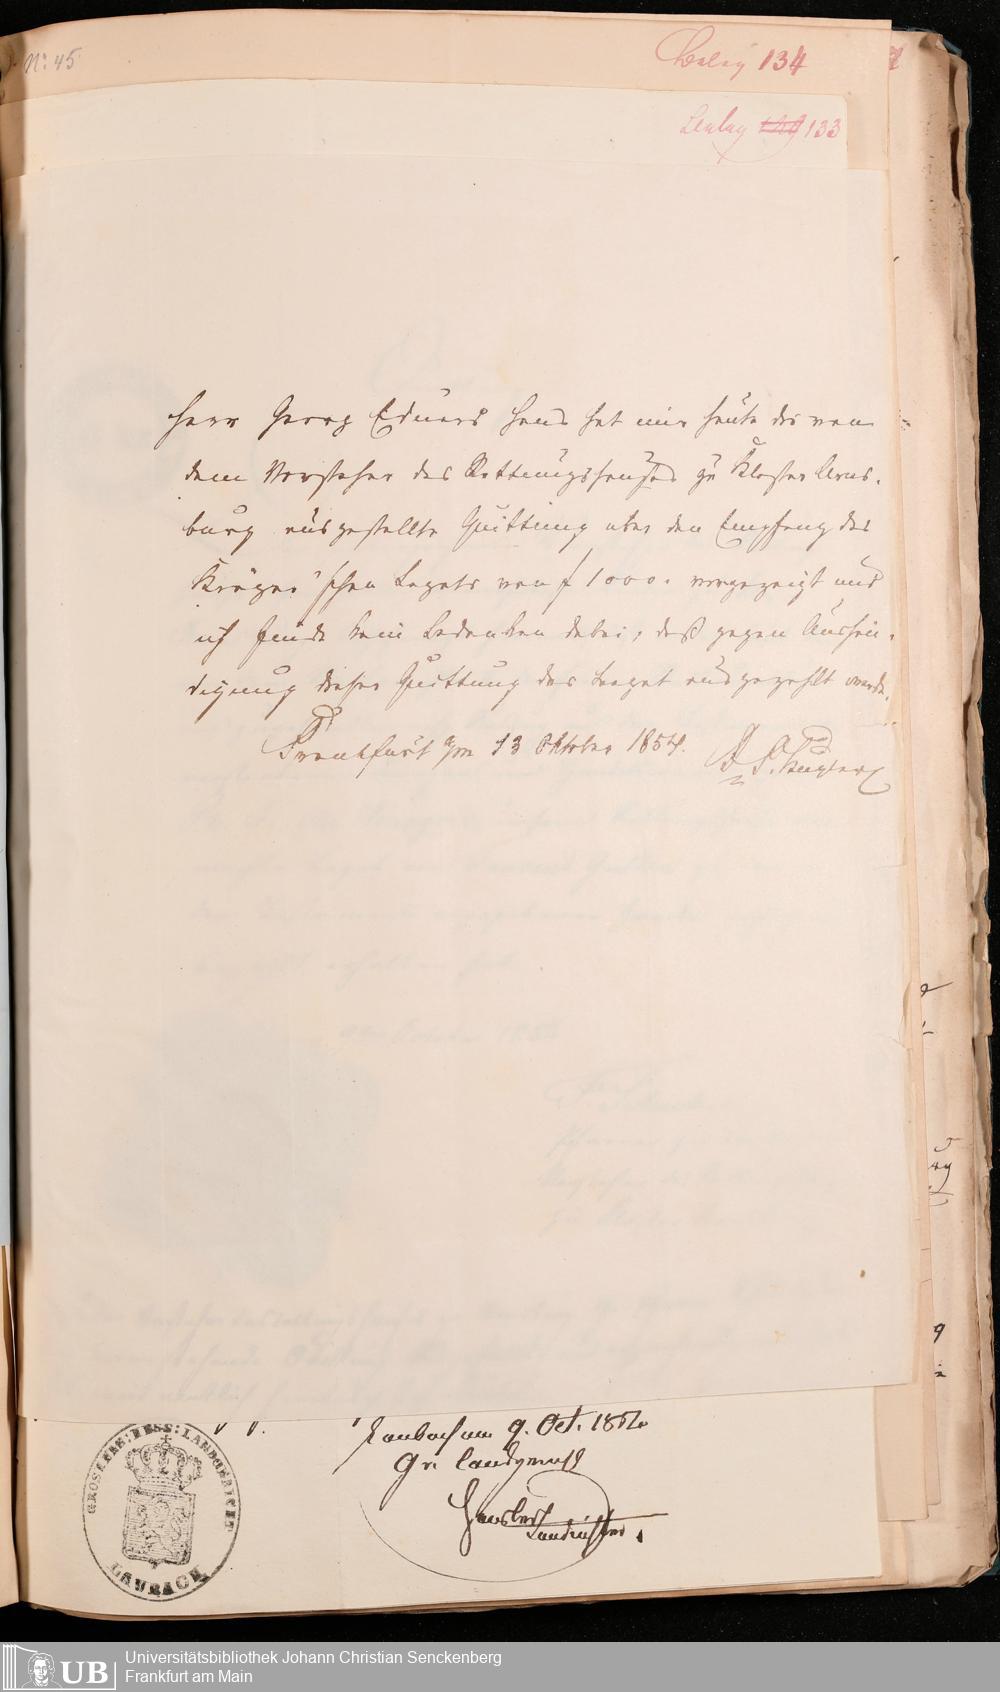 No: 45
Beleg 134
Beleg 133
Herr Georg Eduard hat mir heute die von
dem Vorsteher des Rettungshauses zu Kloster Arns-
burg ausgestellte Quittung über den Empfang des
Krüger'schen Legats von f 1000. vorgezeigt und
ich finde kein Bedenken dabei, daß gegen Aushän-
digung dieser Quittung das Legat ausgezahlt werde.
Frankfurt am 13 Oktober 1854.
Laubach am 9. Oct. 1854
Gr. Landgericht
Landrichter.
GROSHERZ: HESS: LANDGERICHT
LAUBACH
UB
Universitätsbibliothek Johann Christian Senckenberg
Frankfurt am Main